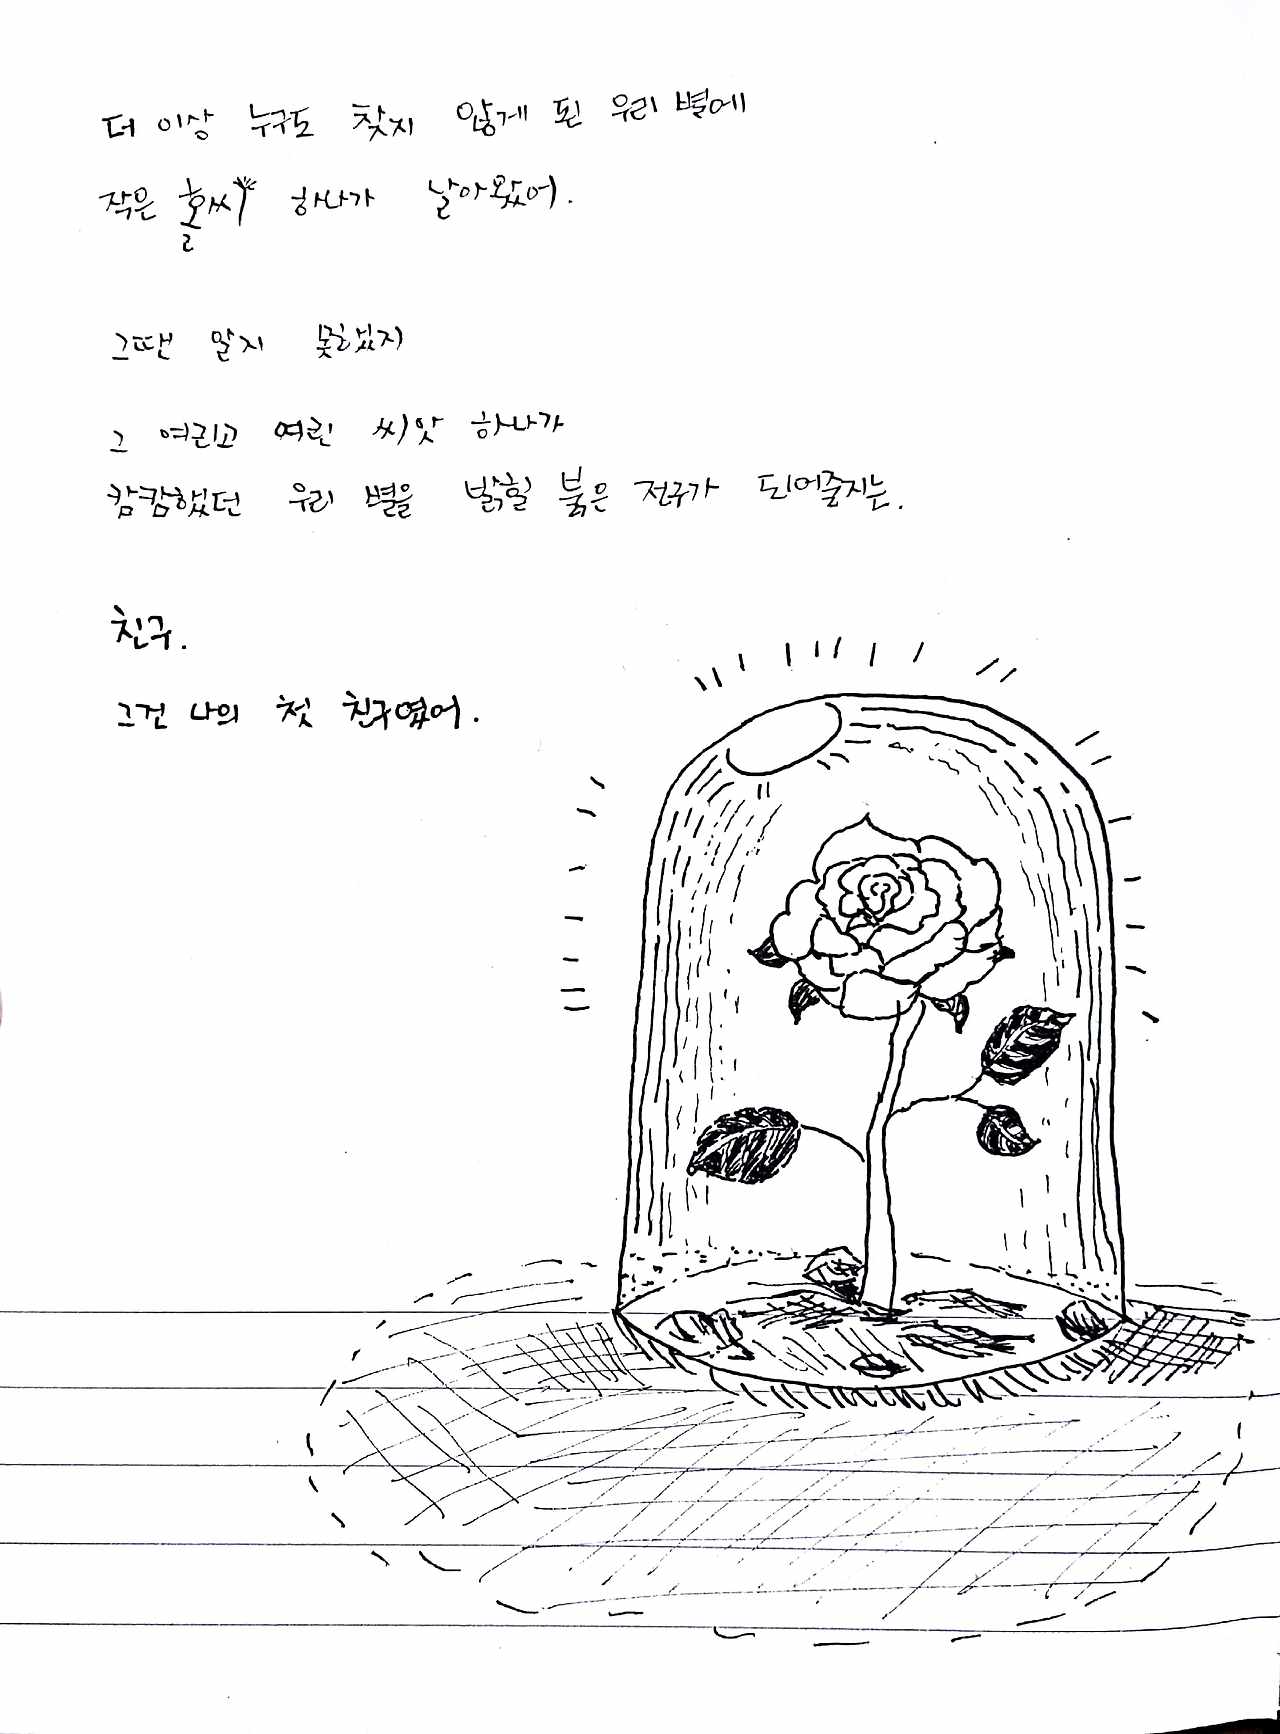 더 이상 누구도 찾지 않게 된 우리 별에
작은 홀씨 하나가 날아왔어.
그땐 알지 못했지
그 여리고 여린 씨앗 하나가
캄캄했던 우리 별을 밝힐 붉은 전구가 되어줄지는.
친구.
그건 나의 첫 친구였어.